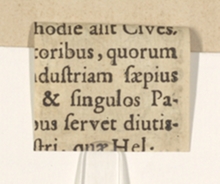 hodie alit Cives.
toribus, quorum
dustriam sæpius
& singulos Pa-
bus servet diutis-
stri, quæ Hel-